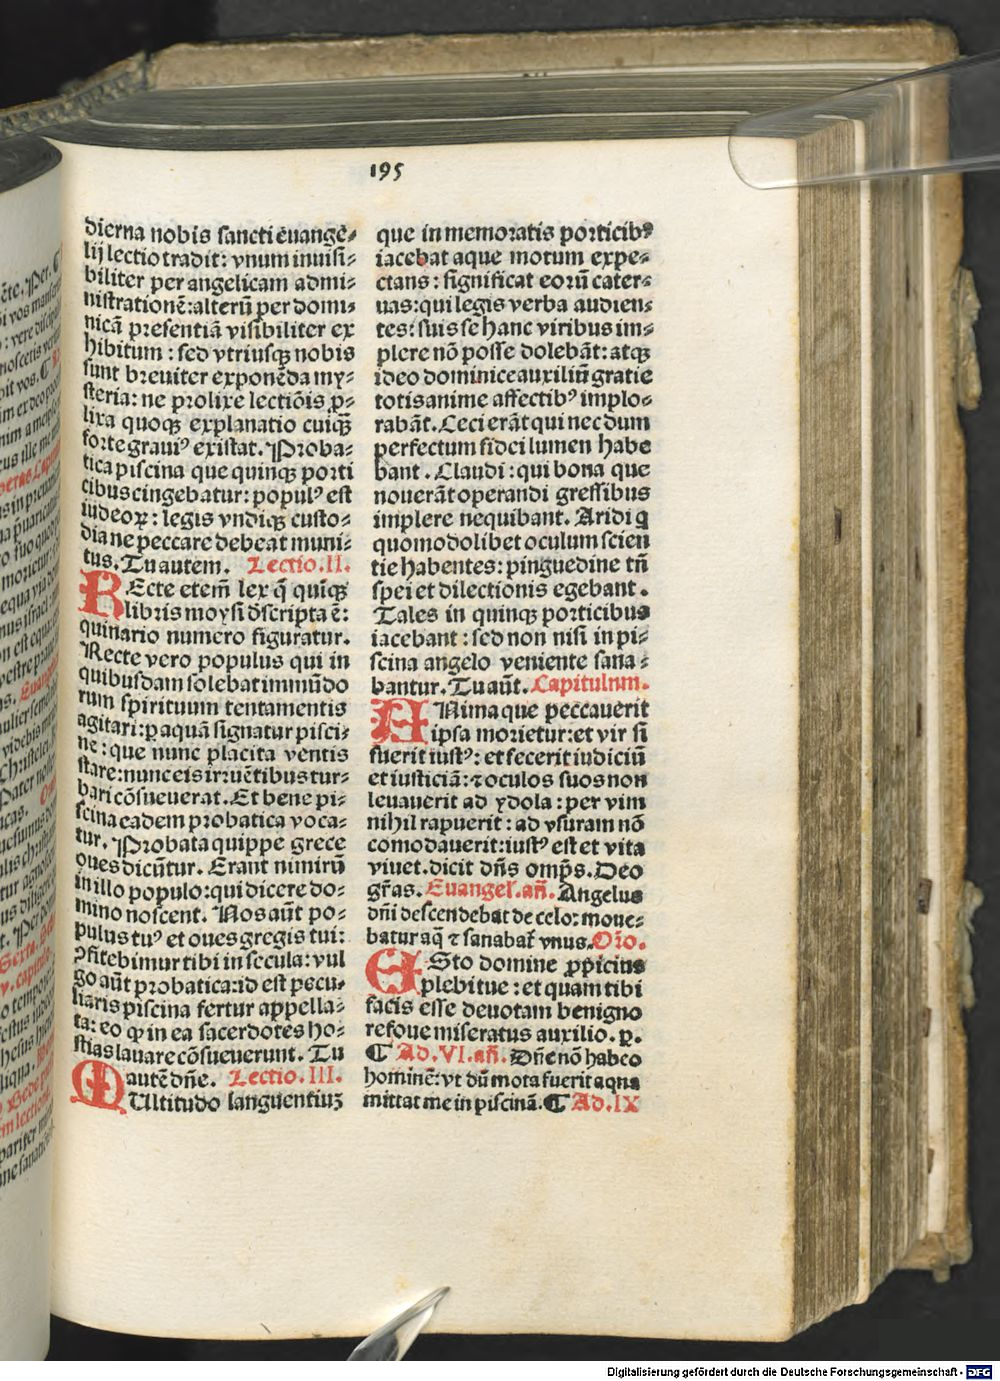 195
dierna nobis sancti euangē⸗
lij lectio tradit: vnum inuisi⸗
biliter per angelicam admi⸗
nistrationē: alterū per domi⸗
nicā presentiā visibiliter ex
hibitum : sed vtriusqꝫ nobis
sunt breuiter exponēda my⸗
steria: ne prolixe lectiōis ꝓ⸗
lixa quoqꝫ explanatio cuiqꝫ
forte grauiꝰ existat. Proba⸗
tica piscina que quinqꝫ porti
cibus cingebatur: populꝰ est
iudeoꝝ: legis vndiqꝫ custo⸗
dia ne peccare debeat muni⸗
tus. Tu autem. Lectio.II.
REcte etem̄ lex q̄ quiqꝫ
libris moysi dscripta ē:
quinario numero figuratur.
Recte vero populus qui in
quibusdam solebat immūdo
rum spirituum tentamentis
agitari: ꝑ aquā signatur pisci⸗
ne: que nunc placita ventis
stare: nunc eis irruētibus tur⸗
bari cōsueuerat. Et bene pi⸗
scina eadem probatica voca⸗
tur. Probata quippe grece
oues dicūtur. Erant nimirū
in illo populo: qui dicere do⸗
mino noscent. Nos aūt po⸗
pulus tuꝰ et oues gregis tui:
ꝯfitebimur tibi in secula: vul
go aūt probatica: id est pecu⸗
liaris piscina fertur appella⸗
ta: eo ꝙ in ea sacerdotes ho⸗
stias lauare cōsueuerunt. Tu
autē dne. Lectio.III.
MUltitudo languentiuꝫ
que in memoratis porticibꝰ
iacebat aque motum expe⸗
ctans: significat eorū cater⸗
uas: qui legis verba audien⸗
tes: suis se hanc viribus im⸗
plere nō posse dolebāt: atqꝫ
ideo dominice auxiliū gratie
totis anime affectibꝰ implo⸗
rabāt. Ceci erāt qui nec dum
perfectum fidei lumen habe
bant. Claudi: qui bona que
nouerāt operandi gressibus
implere nequibant. Aridi q
quomodolibet oculum scien
tie habentes: pinguedine tn̄
spei et dilectionis egebant.
Tales in quinqꝫ porticibus
iacebant: sed non nisi in pi⸗
scina angelo veniente sana⸗
bantur. Tu aūt. Capitulum.
ANima que peccauerit
ipsa morietur: et vir si
fuerit iustꝰ: et fecerit iudiciū
et iusticiā: ⁊ oculos suos non
leuauerit ad ydola: per vim
nihil rapuerit: ad vsuram nō
comodauerit: iustꝰ est et vita
viuet. dicit dn̄s omp̄s. Deo
gr̄as. Euangel. an̄. Angelus
dn̄i descendebat de celo: moue⸗
batur aq̄ ⁊ sanabat̄ vnus. Or̄o.
ESto domine ꝓpicius
plebi tue: et quam tibi
facis esse deuotam benigno
refoue miseratus auxilio. p.
¶ Ad.VI.an̄. Dn̄e nō habeo
hominē: vt dū mota fuerit aqua
mittat me in piscinā. ¶ Ad.IX
Digitalisierung gefördert durch die Deutsche Forschungsgemeinschaft - DFG